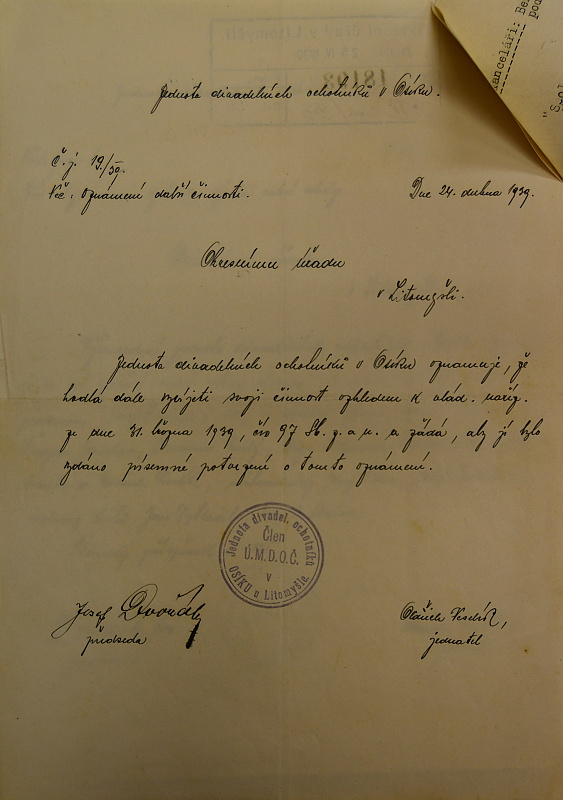 Jednota divadelních ochotníků v Osíku.
Č. j. 19/39.
Věc: Oznámení další činnosti.
Dne 24. dubna 1939.
Okresnímu úřadu
v Litomyšli.
Jednota divadelních ochotníků v Osíku oznamuje, že
hodlá dále vyvíjeti svoji činnost vzhledem k vlád. naříz.
ze dne 31. března 1939, čís 97 Sb. z. a n. a žádá, aby jí bylo
vydáno písemné potvrzení o tomto oznámení.
Jednota divadel. ochotníků
Člen
Ú.M.D.O.Č.
v
OSÍKU u Litomyšle
Josef Dvořák
předseda
Oldřich
jednatel
18193
kanceláři: Be